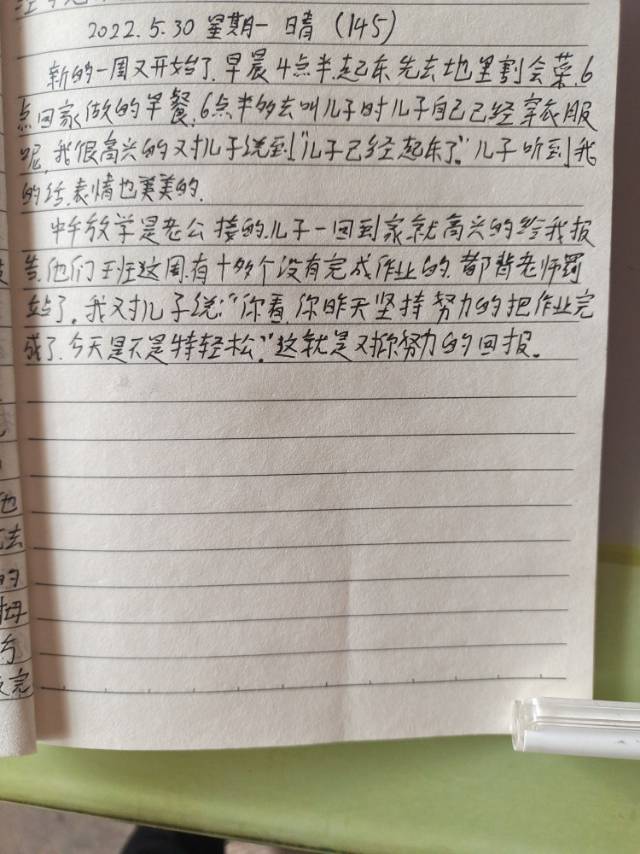 2022.5.30 星期一 晴 (145)
新的一周又开始了.早晨4点半起床先去地里割会菜.6
点回家做的早餐,6点半多去叫儿子时儿子自己已经穿衣服
呢,我很高兴的对儿子说到"儿子已经起床了."儿子听到我
的话表情也美美的.
中午放学是老公接的.儿子一回到家就高兴的给我报
告.他们班这周有十多个没有完成作业的.都背老师罚
站了.我对儿子说:"你看.你昨天坚持努力的把作业完
成了.今天是不是特轻松."这就是对你努力的回报.
他
法
的
母
完